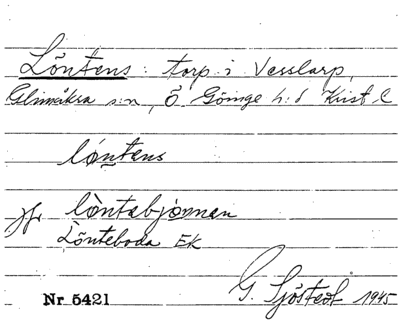 Löntens: torp i Vesslarp,
Glimåkra sn, Ö Göinge hd Krist l
lóntens
jfr lòntabjörnen
Lönteboda EK
G. Sjöstedt 1945
Nr 5421